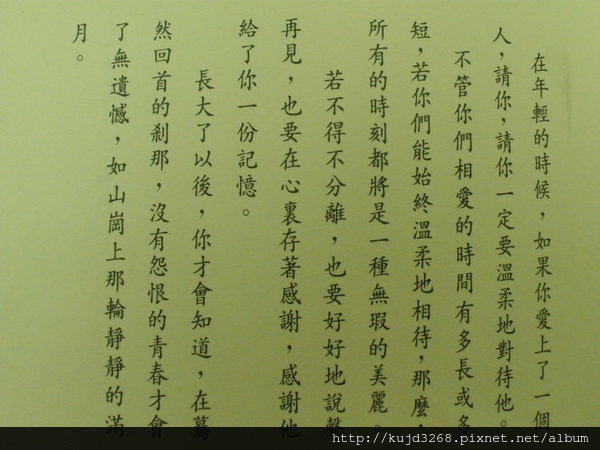 在年輕的時候，如果你愛上了一個
人，請你，請你一定要溫柔地對待他。
不管你們相愛的時間有多長或多
短，若你們能始終溫柔地相待，那麼，
所有的時刻都將是一種無瑕的美麗。
若不得不分離，也要好好地說聲
再見，也要在心裏存著感謝，感謝他
給了你一份記憶。
長大了以後，你才會知道，在驀
然回首的剎那，沒有怨恨的青春才會
了無遺憾，如山崗上那輪靜靜的滿
月。
http://kujd3268.pixnet.net/album